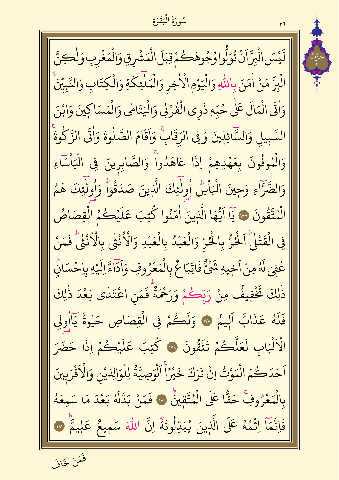 سُورَةُ الْبَقَرَةِ
٢٦
لَيْسَ الْبِرَّ اَنْ تُوَلُّوا وُجُوهَكُمْ قِبَلَ الْمَشْرِقِ وَالْمَغْرِبِ وَلٰكِنَّ
الْبِرَّ مَنْ اٰمَنَ بِاللّٰهِ وَالْيَوْمِ الْاٰخِرِ وَالْمَلٰٓئِكَةِ وَالْكِتَابِ وَالنَّبِيّ۪نَۚ
وَاٰتَى الْمَالَ عَلٰى حُبِّه۪ ذَوِي الْقُرْبٰى وَالْيَتَامٰى وَالْمَسَاك۪ينَ وَابْنَ
السَّب۪يلِ وَالسَّٓائِل۪ينَ وَفِي الرِّقَابِۚ وَاَقَامَ الصَّلٰوةَ وَاٰتَى الزَّكٰوةَۚ
وَالْمُوفُونَ بِعَهْدِهِمْ اِذَا عَاهَدُواۚ وَالصَّابِر۪ينَ فِي الْبَأْسَٓاءِ
وَالضَّرَّٓاءِ وَح۪ينَ الْبَأْسِۜ اُو۬لٰٓئِكَ الَّذ۪ينَ صَدَقُواۜ وَاُو۬لٰٓئِكَ هُمُ
الْمُتَّقُونَ يَٓا اَيُّهَا الَّذ۪ينَ اٰمَنُوا كُتِبَ عَلَيْكُمُ الْقِصَاصُ
فِي الْقَتْلٰىۜ اَلْحُرُّ بِالْحُرِّ وَالْعَبْدُ بِالْعَبْدِ وَالْاُنْثٰى بِالْاُنْثٰىۜ فَمَنْ
عُفِيَ لَهُ مِنْ اَخ۪يهِ شَيْءٌ فَاتِّبَاعٌ بِالْمَعْرُوفِ وَاَدَٓاءٌ اِلَيْهِ بِاِحْسَانٍۜ
ذٰلِكَ تَخْف۪يفٌ مِنْ رَبِّكُمْ وَرَحْمَةٌۜ فَمَنِ اعْتَدٰى بَعْدَ ذٰلِكَ
فَلَهُ عَذَابٌ اَل۪يمٌ وَلَكُمْ فِي الْقِصَاصِ حَيٰوةٌ يَٓا اُو۬لِي
الْاَلْبَابِ لَعَلَّكُمْ تَتَّقُونَ كُتِبَ عَلَيْكُمْ اِذَا حَضَرَ
اَحَدَكُمُ الْمَوْتُ اِنْ تَرَكَ خَيْرًاۚ اَلْوَصِيَّةُ لِلْوَالِدَيْنِ وَالْاَقْرَب۪ينَ
بِالْمَعْرُوفِۚ حَقًّا عَلَى الْمُتَّق۪ينَۜ فَمَنْ بَدَّلَهُ بَعْدَ مَا سَمِعَهُ
فَاِنَّمَٓا اِثْمُهُ عَلَى الَّذ۪ينَ يُبَدِّلُونَهُۜ اِنَّ اللّٰهَ سَم۪يعٌ عَل۪يمٌۜ
فَمَنْ خَافَ